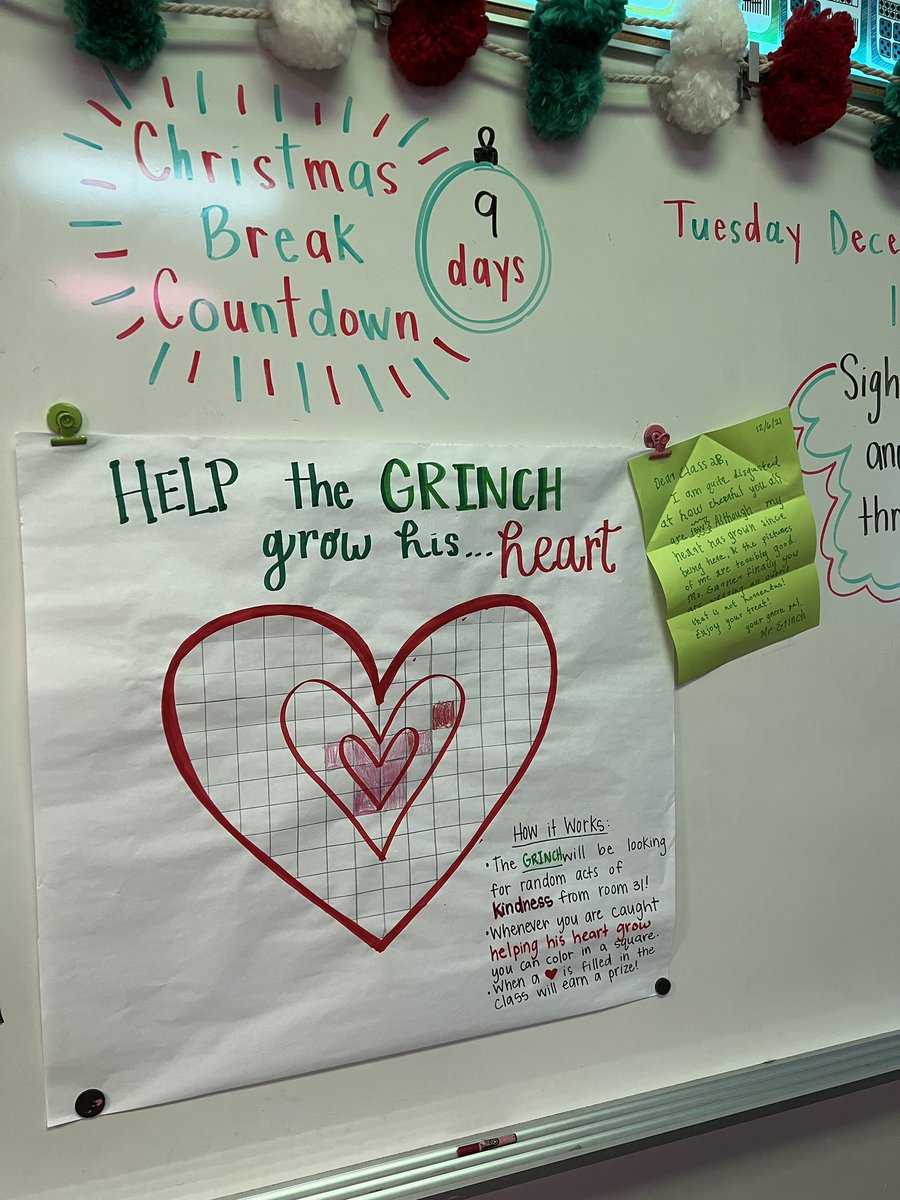 Christmas
Break
Countdown
9
days
Tuesday Dece
Sigh
an
thr
HELP the GRINCH
grow his... heart
12/6/21
Dear Class 2B,
I am quite disgusted
at how cheerful you all
are Although... my
heart has grown since
being here, & the pictures
of me are terribly good.
Ms. Garner finally you
are wearing an outfit
that is not
Enjoy your treat!
your green pal,
Mr. Grinch
How it Works:
• The GRINCH will be looking
for random acts of
kindness from room 31!
• Whenever you are caught
helping his heart grow
you can color in a square.
• When a ♥ is filled in the
class will earn a prize!